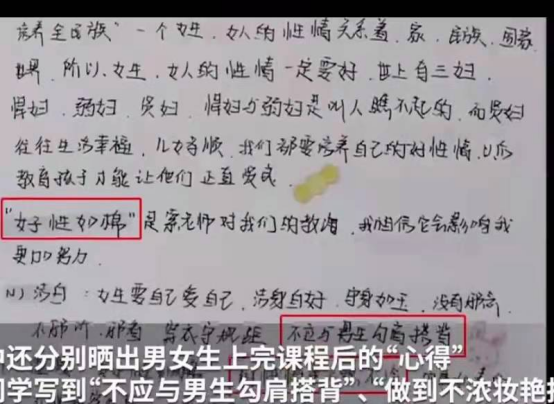 培养全民族”一个女生、女人的性情关系着、家、民族、国家
世界，所以，女生、女人的性情一定要好，世上有三妇，
悍妇、弱妇、贤妇，悍妇与弱妇是叫人瞧不起的，而贤妇
往往生活幸福，儿女孝顺，我们都要培养自己的好性情，以后
教育孩子才能让他们正直
“女子性如棉”是老师对我们的教诲，我相信它会影响我
更加努力。
洁白：女生要自己爱自己，洁身自好，守身如玉，没有邪
不应与男生勾肩搭背
中还分别晒出男女生上完课程后的“心得”
同学写到“不应与男生勾肩搭背”、“做到不浓妆艳抹